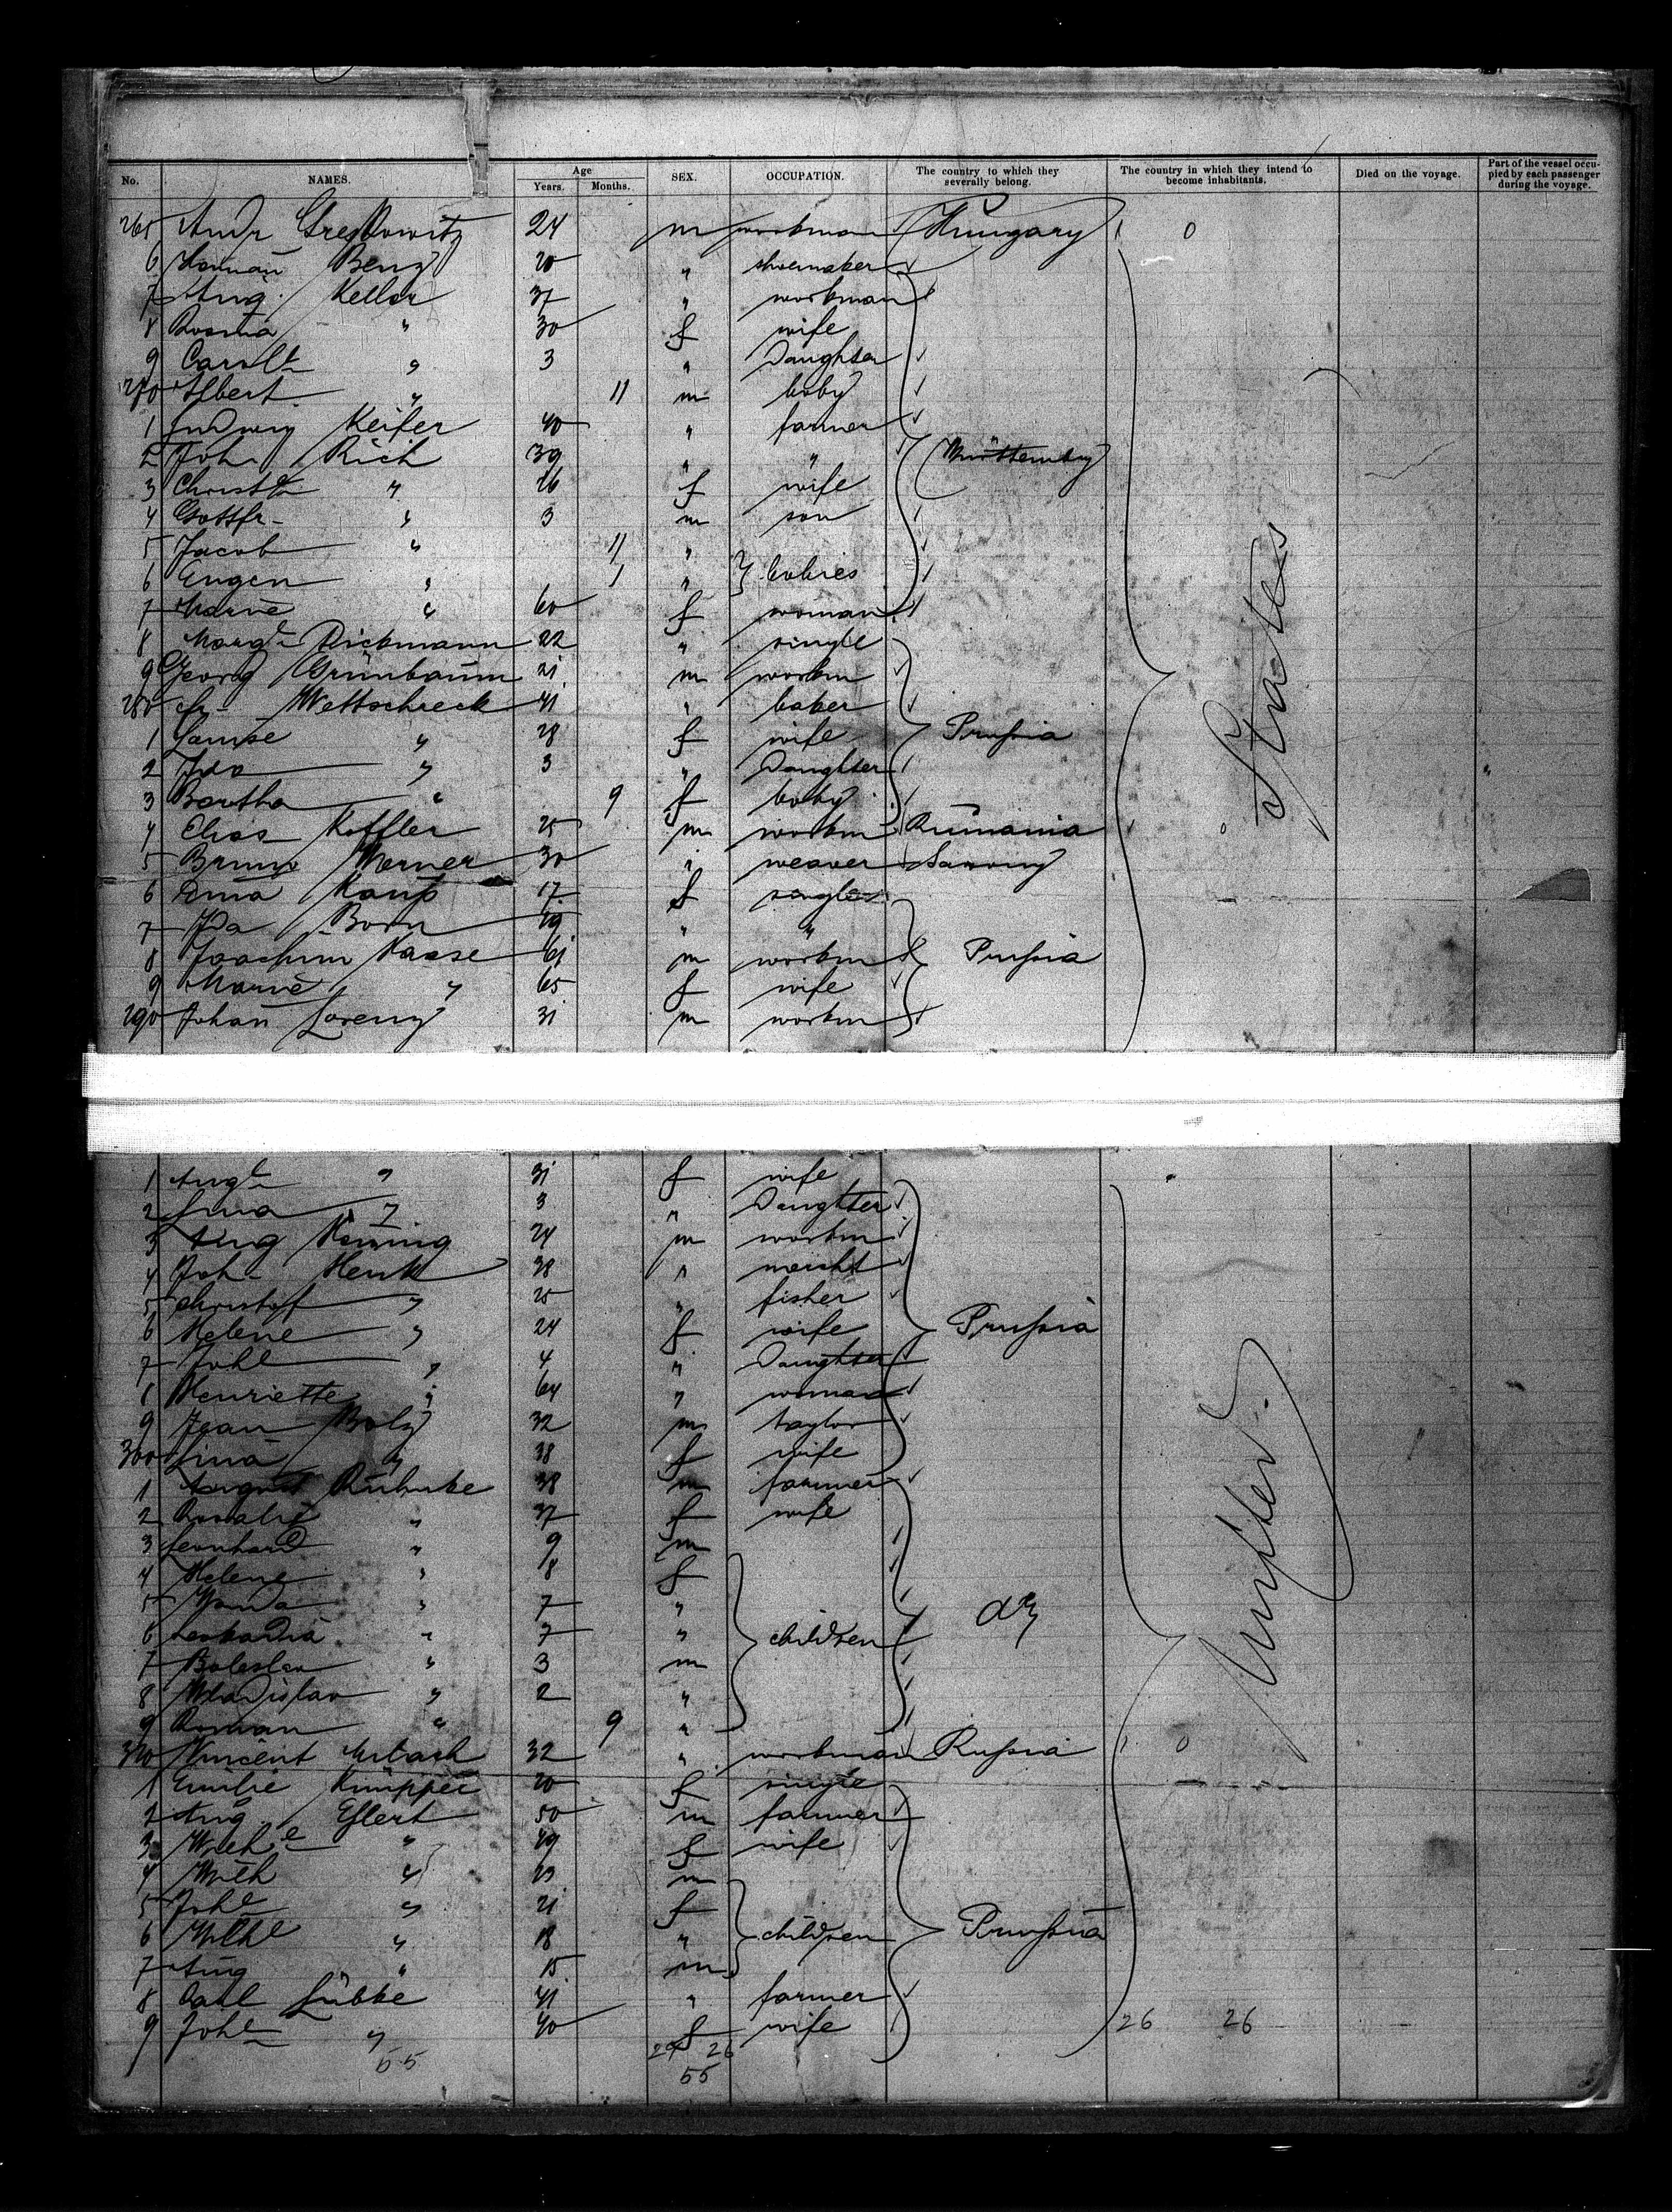 No. NAMES. Age Years. Months. SEX. OCCUPATION. The country to which they severally belong. The country in which they intend to become inhabitants. Died on the voyage. Part of the vessel occupied by each passenger during the voyage.
265 Andr 24 m workman Hungary 1 0
6 Benz 20 " shoemaker
7 Aug. Keller 37 " workman
8 Rosina " 30 f wife
9 Carole " 3 " Daughter
270 Albert " 11 m baby
1 Ludwig Keifer 40 " farmer
2 Joh. Rich 39 " " Württemberg
3 Christe " 26 f wife
4 Gottfr- " 3 m son
5 Jacob " 11 "
6 Eugen " 1 " babies
7 Marie " 60 f woman
8 Marge Dickmann 22 " single
9 Georg Grünbaum 21 m workm
280 Fr- Wettschreck 41 " baker
1 Louise " 28 f wife Prussia
2 Ida " 3 " Daughter
3 Bertha " 9 f baby
4 Elias Koffler 25 m workm Rumania 0
5 Bruno Werner 30 " weaver Saxony
6 17 f single
7 Ida Born 19 " "
8 Joachim Haase 61 m workm Prussia
9 Marie " 65 f wife
290 Johan Lorenz 31 m workm
States
1 Auge " 31 f wife
2 " 3 " Daughter
3 Aug 24 m workm
4 Joh- Henk 38 "
5 Christof " 25 " fisher
6 Helene " 24 f wife Prussia
7 Johe " 4 " Daughter
8 Henriette " 64 " woman
9 Jean Bolz 32 m taylor
300 Lina " 38 f wife
1 August 38 m farmer
2 Rosalie " 37 f wife
3 Leonhard " 9 m
4 Helene " 8 f
5 " 7 " do
6 Leokadia " 7 " children
7 Boleslav " 3 m
8 Wladislav " 2 "
9 Roman " 9 "
310 Vincent Urbach 32 " workman Russia 1 0
1 Emilie 20 f single
2 Aug. Eflert 50 m farmer
3 Wilhe " 49 f wife
4 Wilh " 23 m
5 Johe " 21 f
6 Wilhe " 18 " children Prussia
7 Aug " 15 m
8 Carl Lübke 41 " farmer
9 Johe " 40 f wife 26 26
55 29 26
55